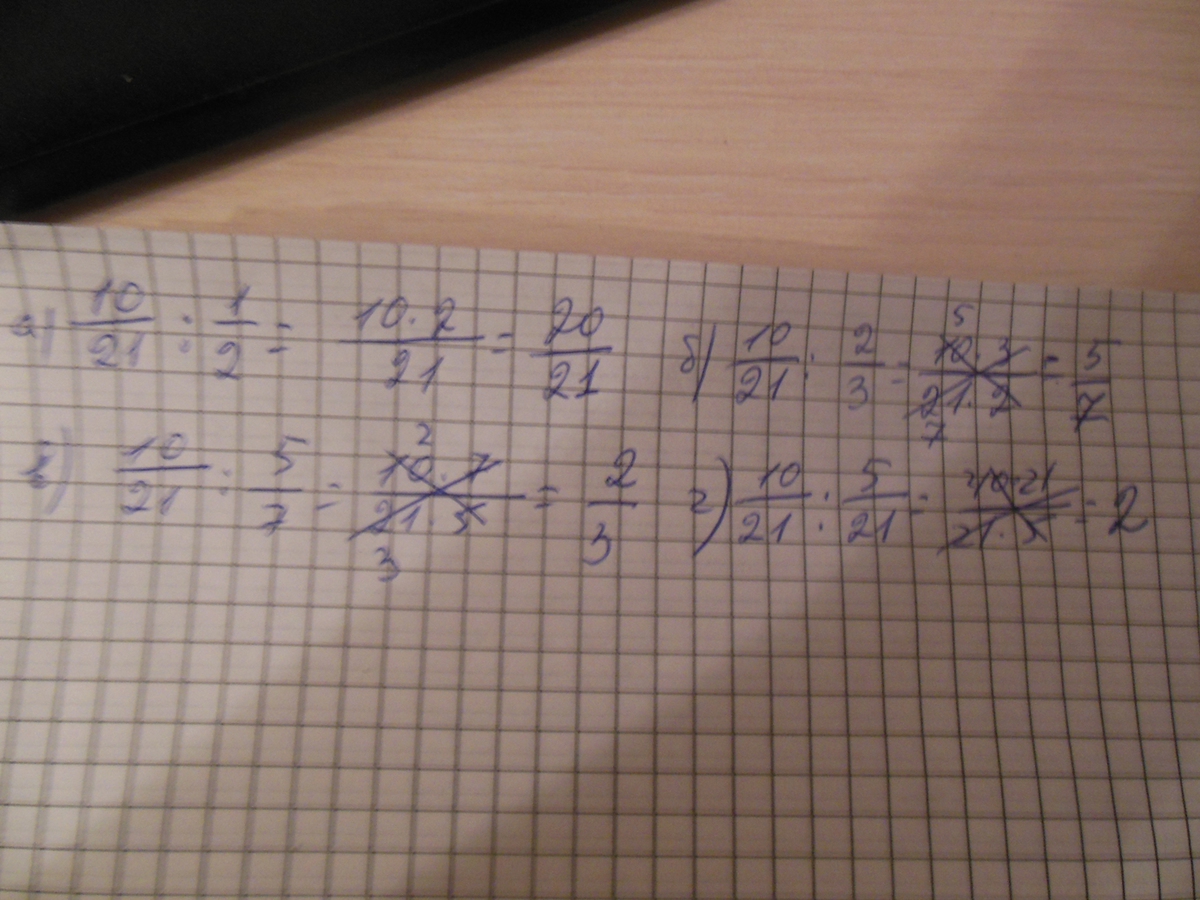 а) 10/21 : 1/2 = 10·2/21 = 20/21 б) 10/21 : 2/3 = 10·3/21·2 = 5/7
в) 10/21 : 5/7 = 10·7/21·5 = 2/3 г) 10/21 : 5/21 = 10·21/21·5 = 2